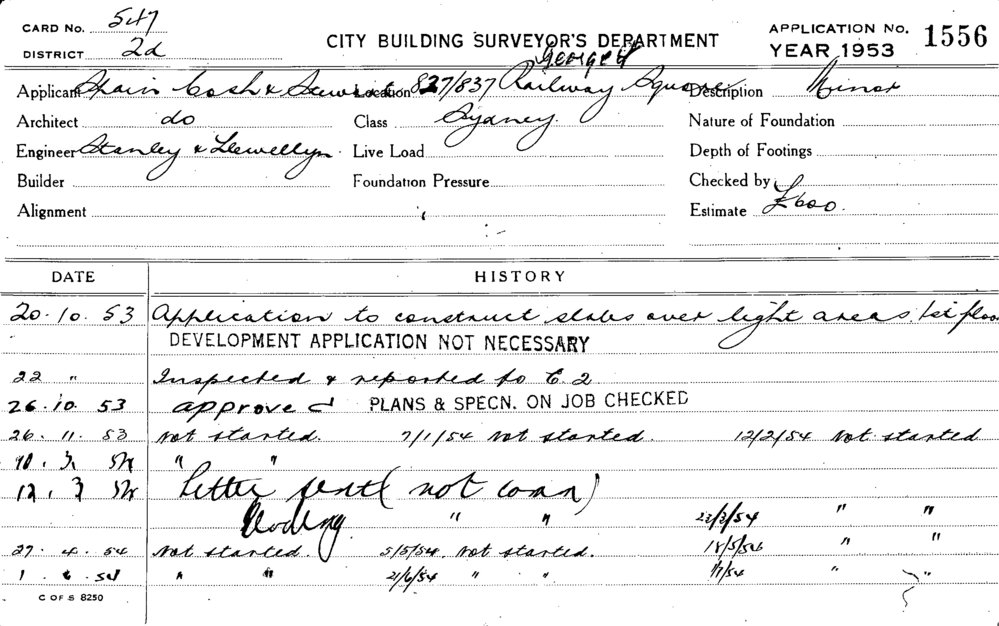 CARD NO. 547
DISTRICT 2d
CITY BUILDING SURVEYOR'S DEPARTMENT
APPLICATION NO. 1556
YEAR 1953
George St
Applicant Spain Cosh & Location 827/837 Railway Square Description Minor
Architect do Class Sydney. Nature of Foundation
Engineer Stanley & Llewellyn. Live Load Depth of Footings
Builder Foundation Pressure Checked by
Alignment Estimate £600.
DATE HISTORY
20.10.53 Application to construct slabs over light areas, 1st floor
DEVELOPMENT APPLICATION NOT NECESSARY
22 " Inspected & reported to C.2
26.10.53 approved PLANS & SPECN. ON JOB CHECKED
26.11.53 Not started. 7/1/54 Not started. 12/2/54 Not started
10.3.54 " "
12.3.54 Letter sent (not com)
" " 23/3/54 " "
27.4.54 Not started. 5/5/54. Not started. 18/5/54 " "
1.6.54 " " 21/6/54 " " 1/7/54 "
C OF S 8250